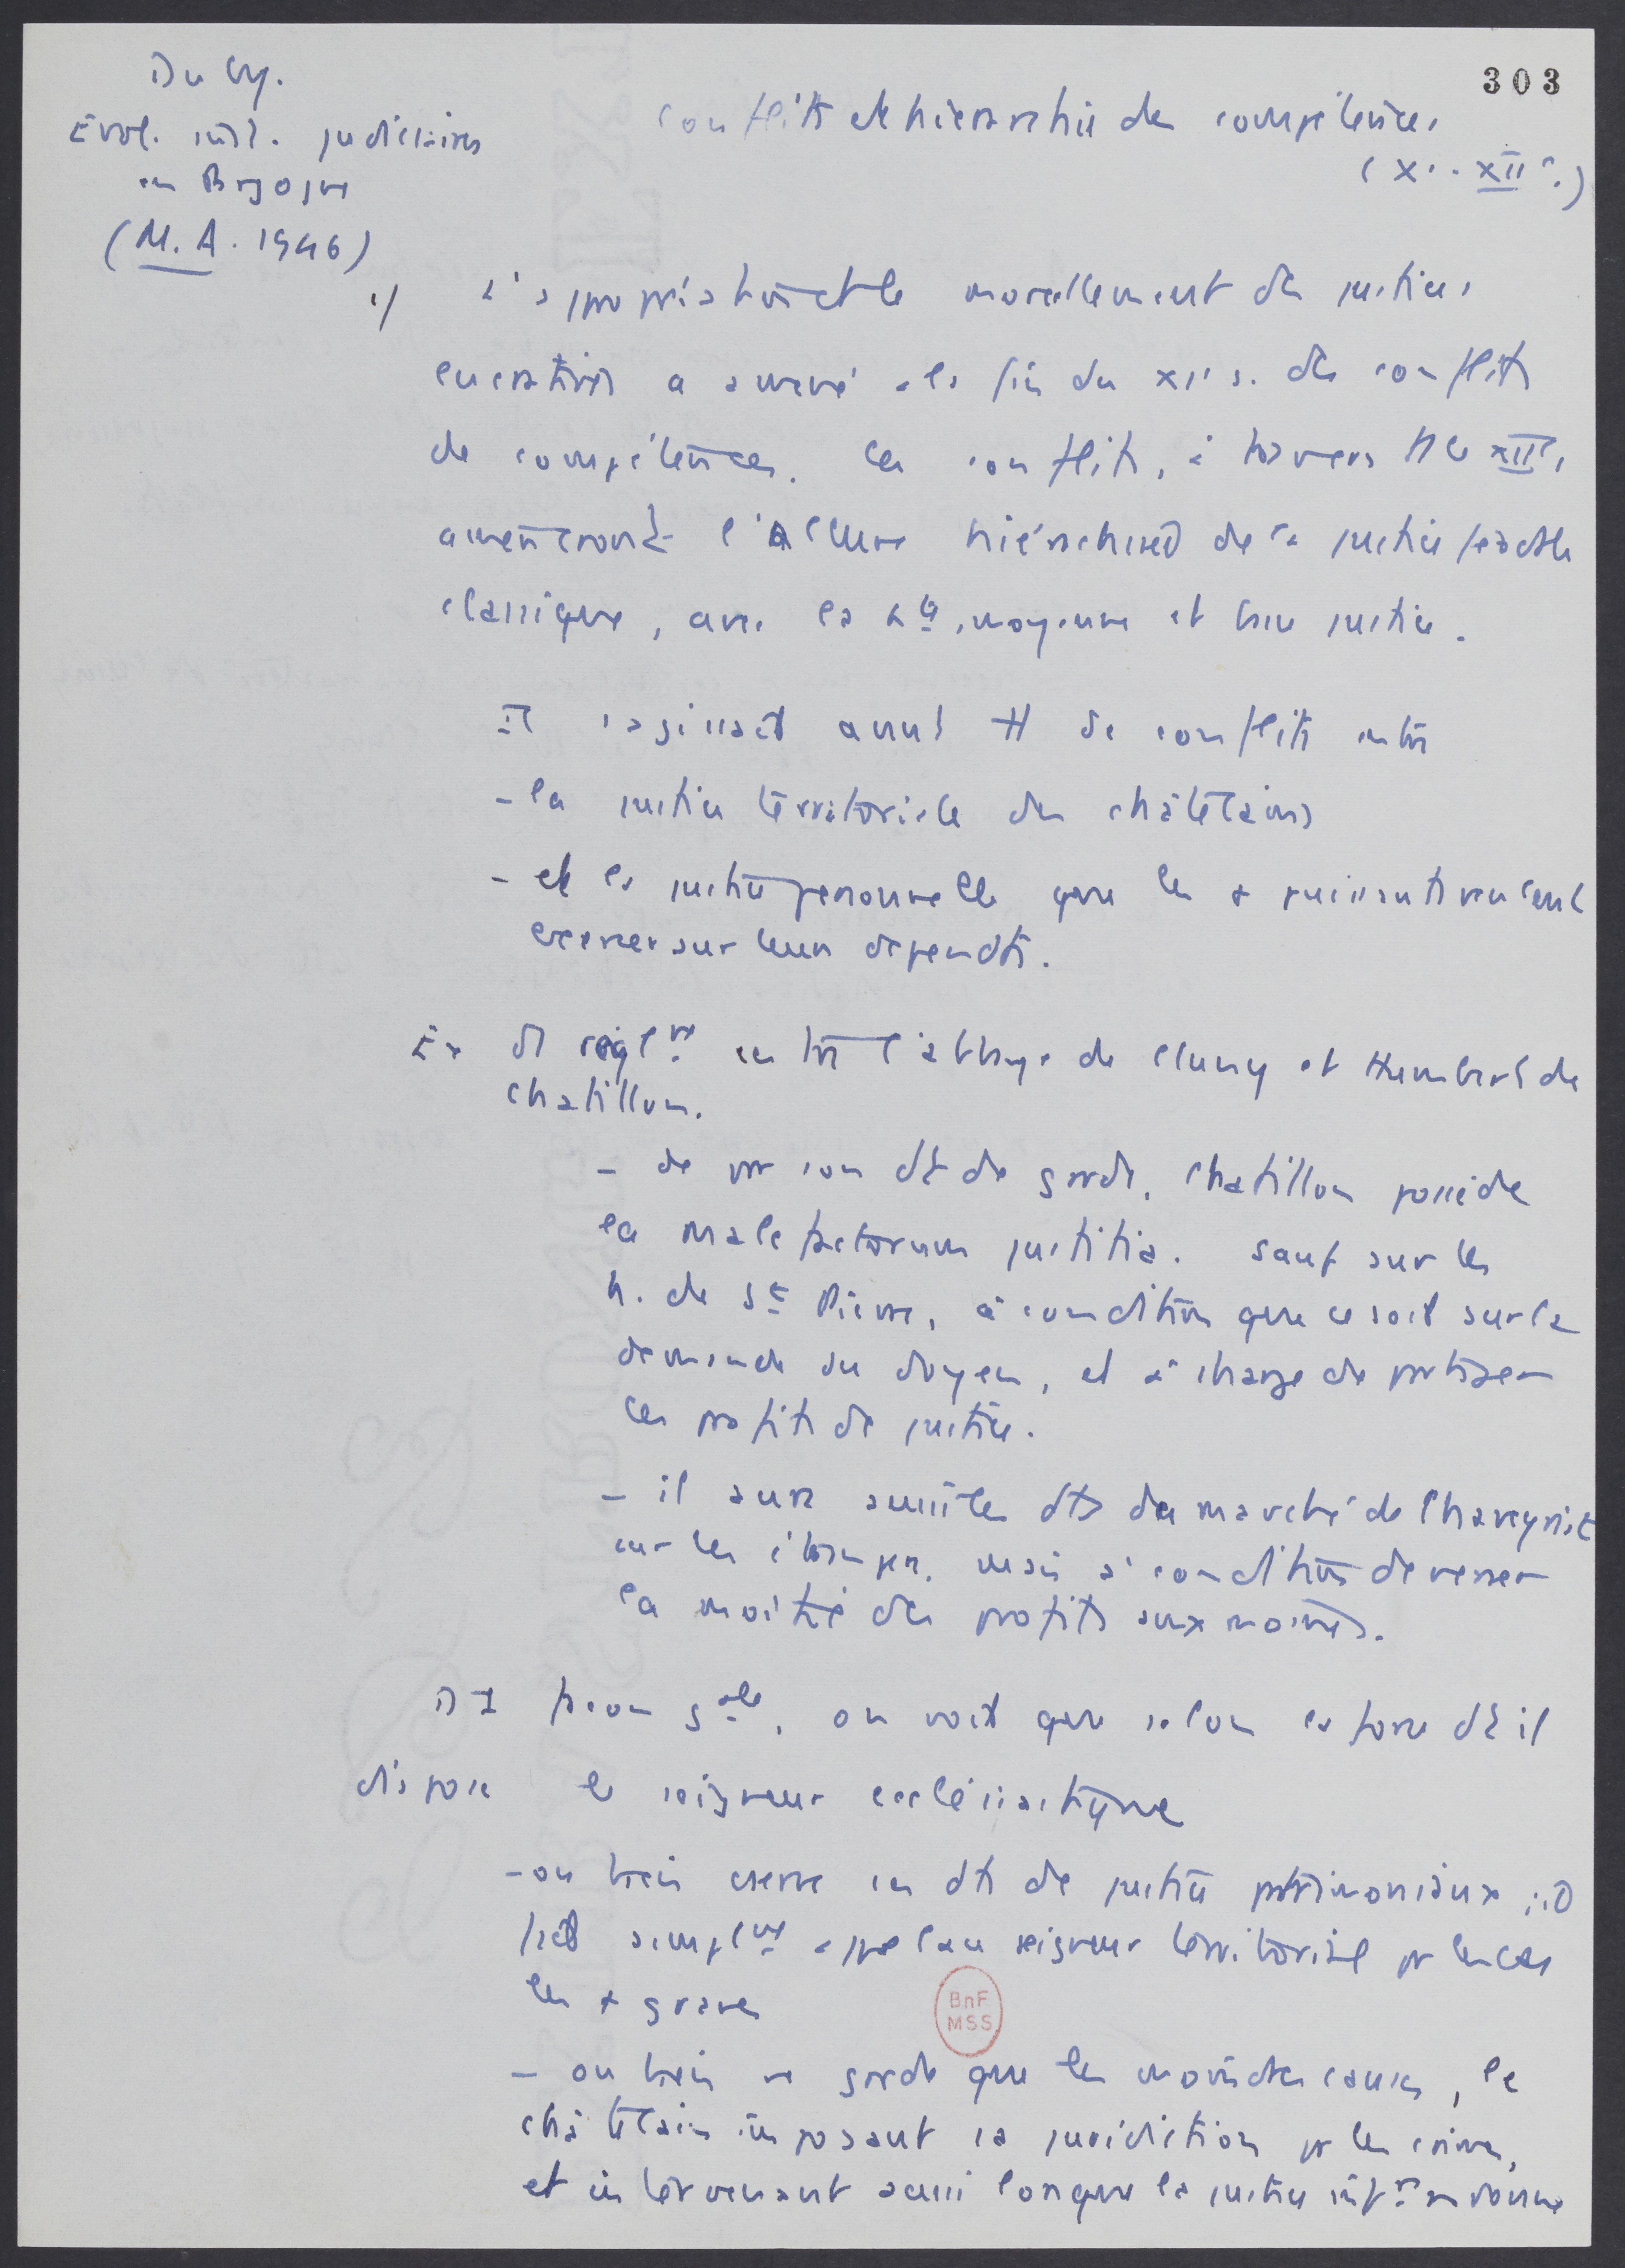 303
Duby.
Evol. inst. judiciaires
en Brgogne
(M.A. 1946)
Conflits et hiérarchie des compétences
(XI-XIIe.)
1/ L'appropriation et le morcellement des justices
lucratives a amené à la fin du XIIe s. des conflits
de compétences. Ces conflits, à travers tt le XIIIe,
amèneront l'allure hiérarchisée de la justice féodale
classique, avec la hte, moyenne et basse justice.
Il s'agissait avant tt de conflits entre
- la justice territoriale des châtelains
- et la justice personnelle que les + puissants veulent
exercer sur leurs dépendts.
Ex de règlt entre l'abbaye de Cluny et Humbert de
Chatillon.
- de par son dt de garde, Chatillon possède
la malefactorum justitia. Sauf sur les
h. de St Pierre, à condition que ce soit sur la
demande du doyen, et à charge de partager
les profits de justice.
- il aura aussi les dts du marché de
sur les étrangers, mais à condition de verser
la moitié des profits aux moines.
D'1 façon gale, on voit que selon la force dt il
dispose le seigneur ecclésiastique
- ou bien exerce ses dts de justice patrimoniaux ; il
fait simplt appel au seigneur territorial pr les cas
les + graves
- ou bien ne garde que les moindres causes, le
châtelain imposant sa juridiction pr les crimes,
et intervenant aussi lorsque la justice infre
BnF
MSS